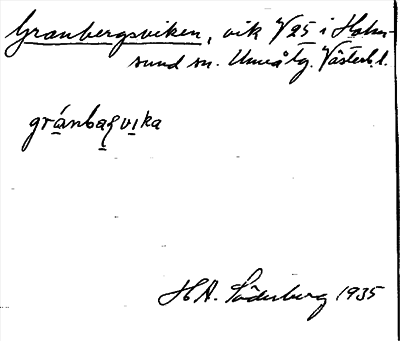 Granbergsviken, vik V 25 i Holm-
sund sn. Umeå tg. Västerb. l.
gránbaʂvika
H A. Söderberg 1935